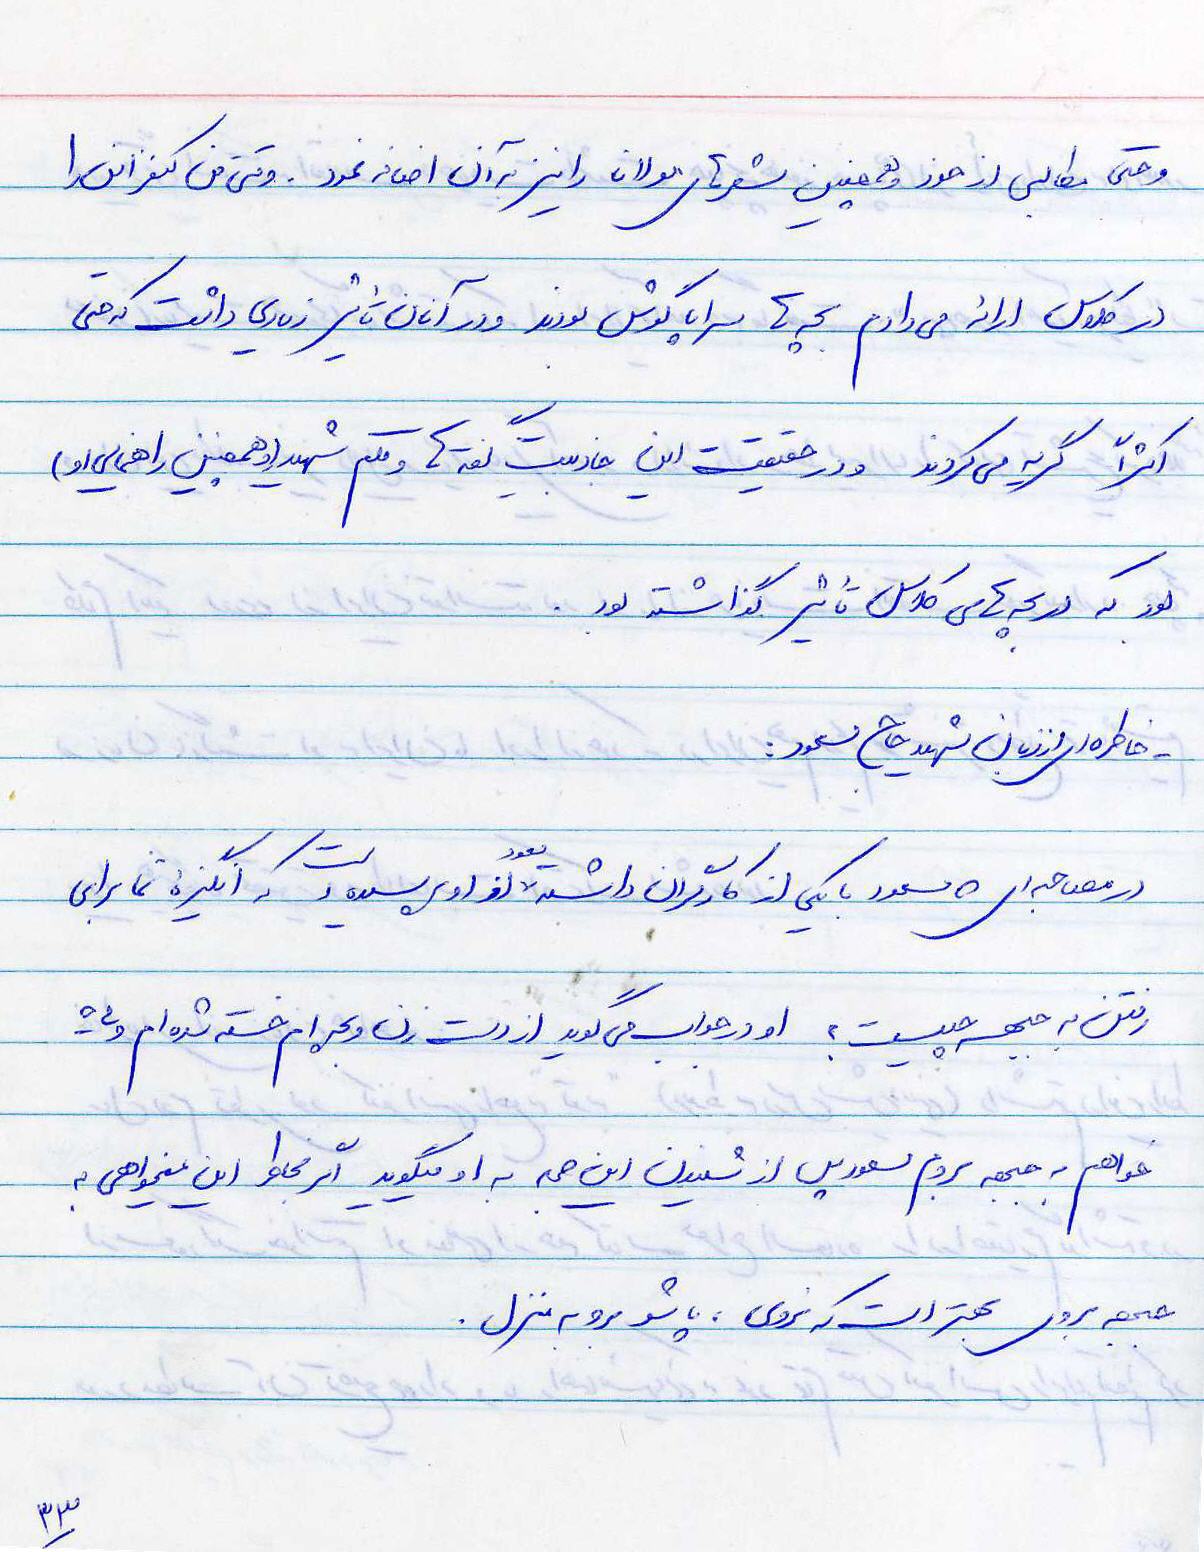 و حتی مطالبی از خود و همچنین شعرهای مولانا را نیز به آن اضافه نمود . وقتی من کنفرانس را
در کلاس ارائه می دادم بچه ها سراپا گوش بودند و در آنان تأثیر زیادی داشت که حتی
اکثراً گریه می کردند و در حقیقت این جاذبیت گفته ها و قلم شهید (و همچنین راهنمایی او)
بود که در بچه های کلاس تأثیر گذاشته بود .
- خاطره ای از زبان شهید حاج مسعود :
در مصاحبه ای که مسعود با یکی از کارگران داشته بود از او پرسیده است که انگیزۀ شما برای
رفتن به جبهه چیست ؟ او در جواب می گوید از دست زن و بچه ام خسته شده ام و می
خواهم به جبهه بروم مسعود پس از شنیدن این جمله به او میگوید اگر بخاطر این میخواهی به
جبهه بروی بهتر است که نروی ، پاشو برو به منزل .
۳۳